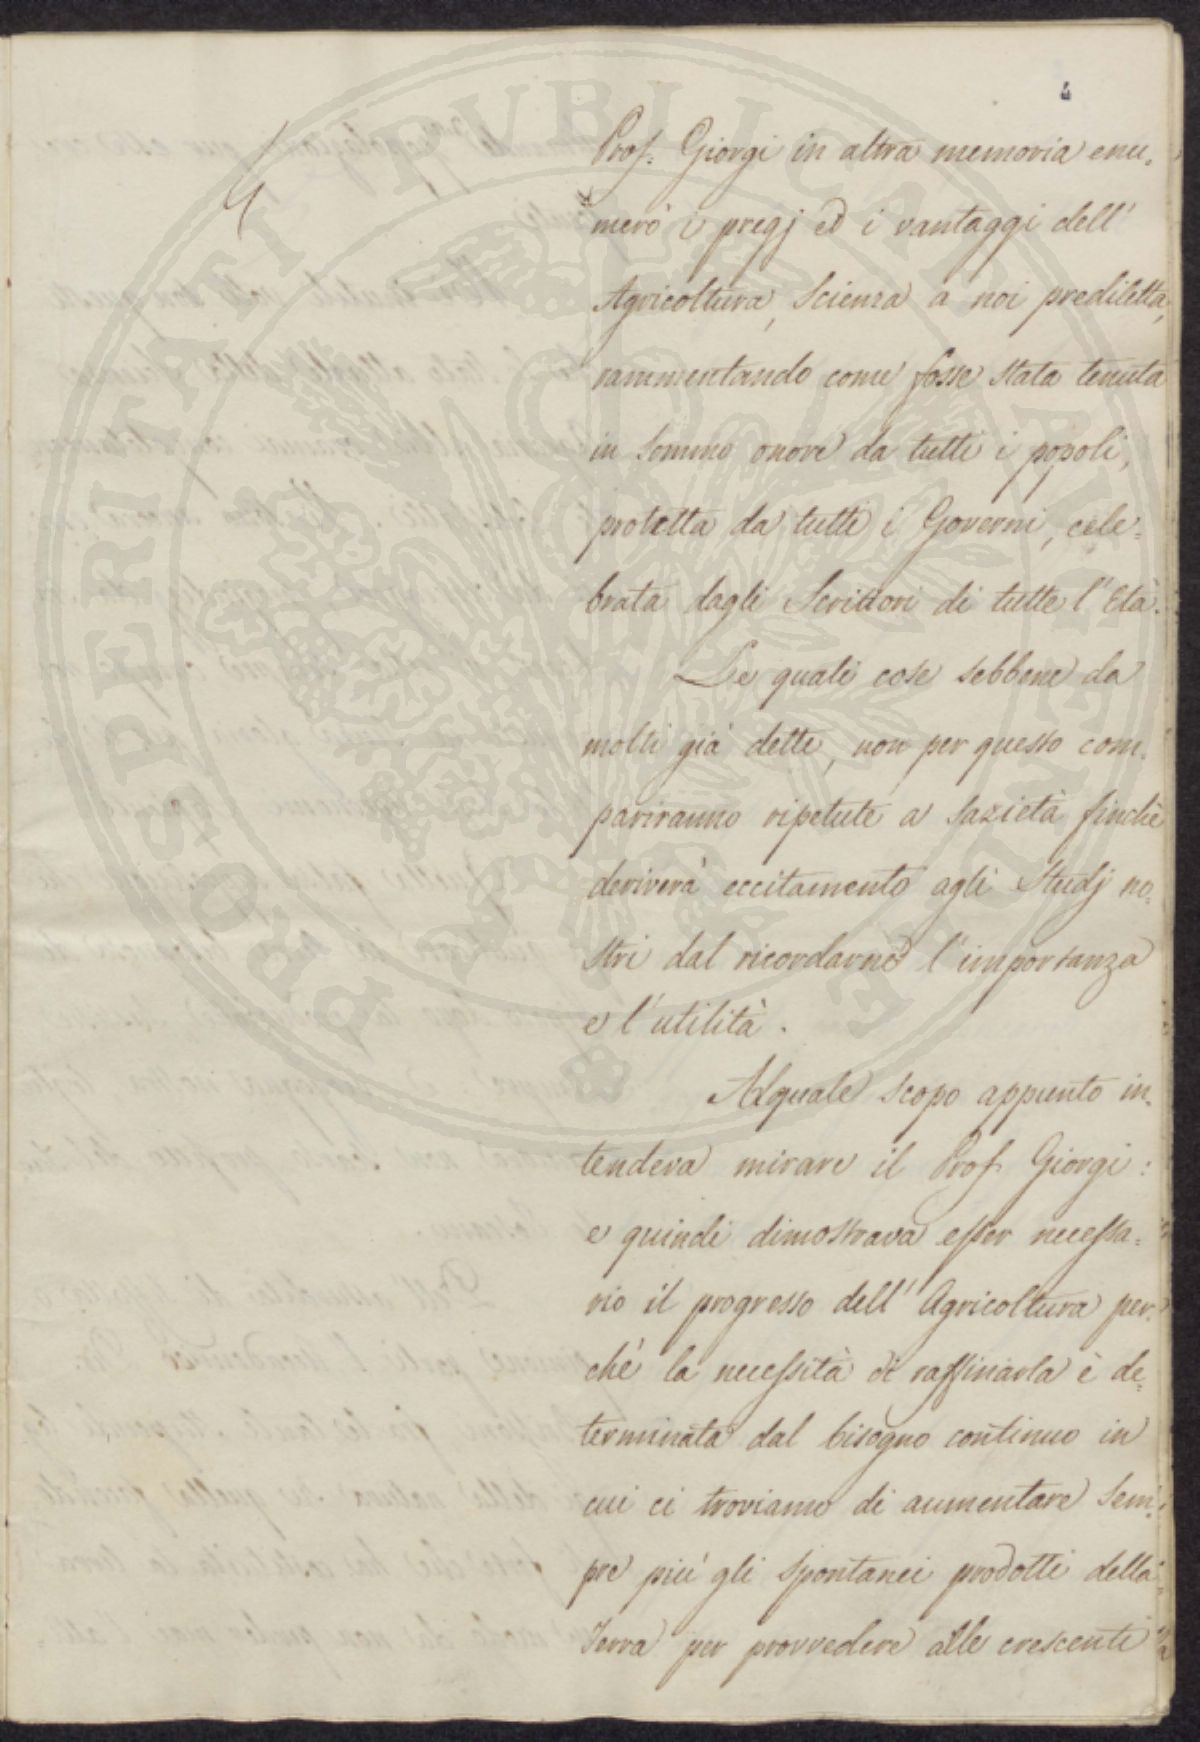 4
Prof. Giorgi in altra memoria enu-
merò i pregj ed i vantaggi dell'
Agricoltura, Scienza a noi prediletta,
rammentando come fosse stata tenuta
in sommo onore da tutti i popoli,
protetta da tutti i Governi, cele-
brata dagli Scrittori di tutte l'Età.
Le quali cose sebbene da
molti già dette, non per questo com-
pariranno ripetute a sazietà finchè
deriverà eccitamento agli Studj no-
stri dal ricordarne l'importanza
e l'utilità.
Al quale scopo appunto in-
tendeva mirare il Prof. Giorgi:
e quindi dimostrava esser necessa-
rio il progresso dell'Agricoltura per-
chè la necessità di raffinarla è de-
terminata dal bisogno continuo in
cui ci troviamo di aumentare sem-
pre più gli spontanei prodotti della
Terra per provvedere alle crescenti
PROSPERITATI PUBLICAE AUGENDAE